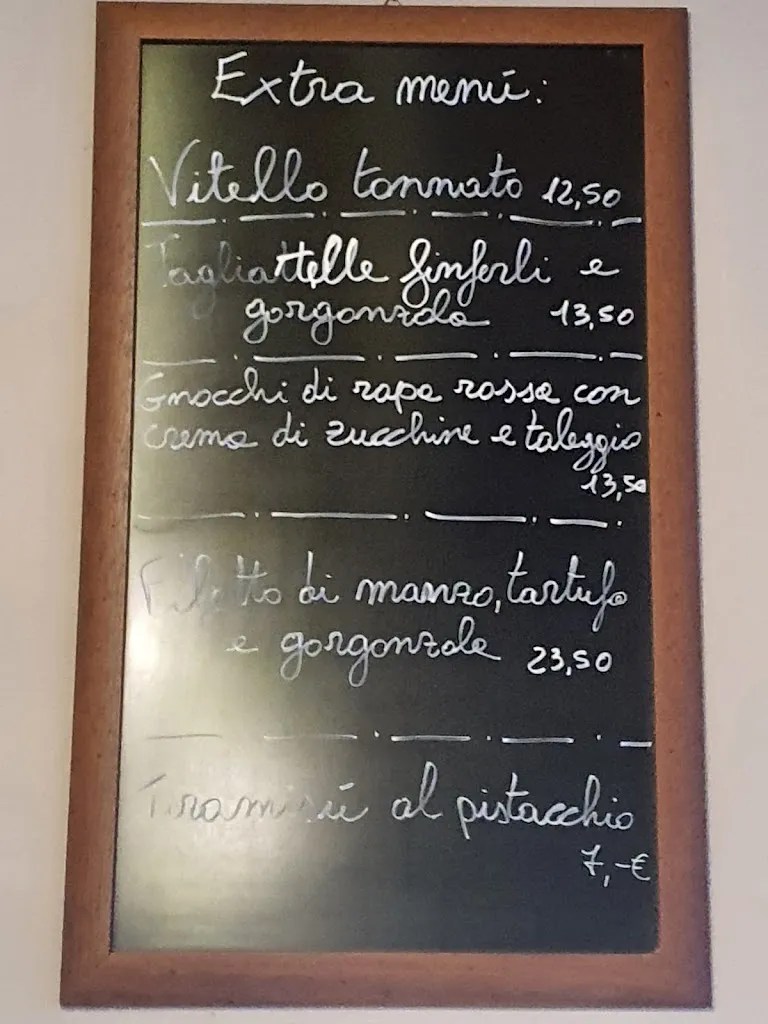 Extra menú:
Vitello tonnato 12,50
Tagliattelle finferli e
gorgonzola 13,50
Gnocchi di rapa rossa con
crema di zucchine e taleggio
13,50
Filetto di manzo, tartufo
e gorgonzola 23,50
Tiramisú al pistacchio
7,-€